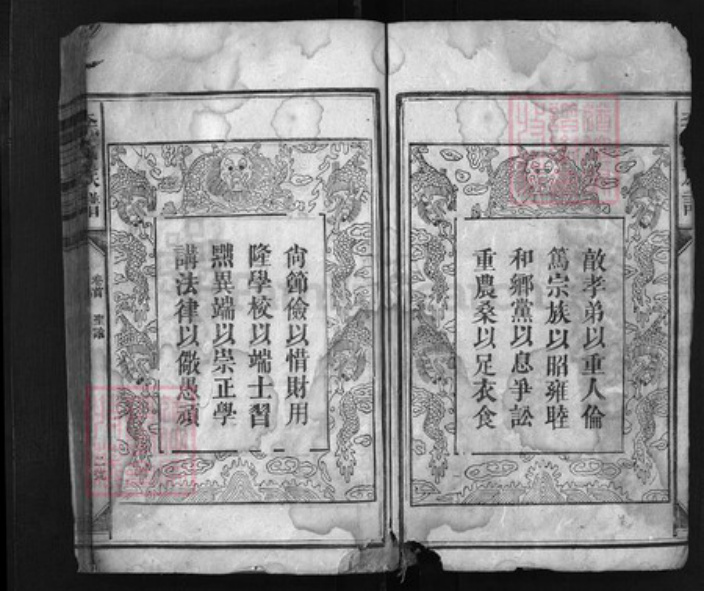 敦孝弟以重人倫
篤宗族以昭雍睦
和鄉黨以息爭訟
重農桑以足衣食
尙節儉以惜財用
隆學校以端士習
黜異端以崇正學
講法律以儆愚頑
卷首
聖諭